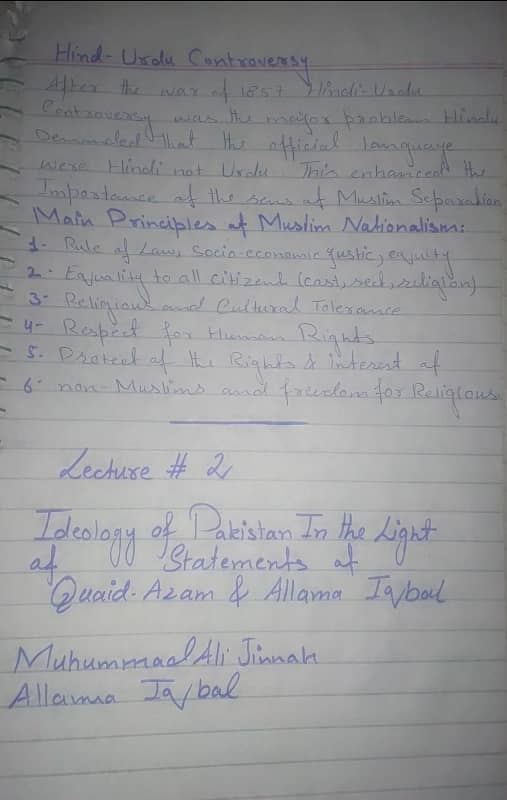 Hind-Urdu Controversy
After the war of 1857 Hindi-Urdu
Controversy was the major problem Hindu
Demanded that the official language
were Hindi not Urdu. This enhanced the
Importance of the sens of Muslim Separation
Main Principles of Muslim Nationalism:
1- Rule of Law, Socio-economic Justic, equity
2- Equality to all citizens (cast, sect, religion)
3- Religious and Cultural Tolerance
4- Respect for Human Rights
5. Protect of the Rights & interest of
6- non-Muslims and freedom for Religious.
Lecture # 2
Ideology of Pakistan In the Light
of Statements of
Quaid-Azam & Allama Iqbal
Muhummad Ali Jinnah
Allama Iqbal